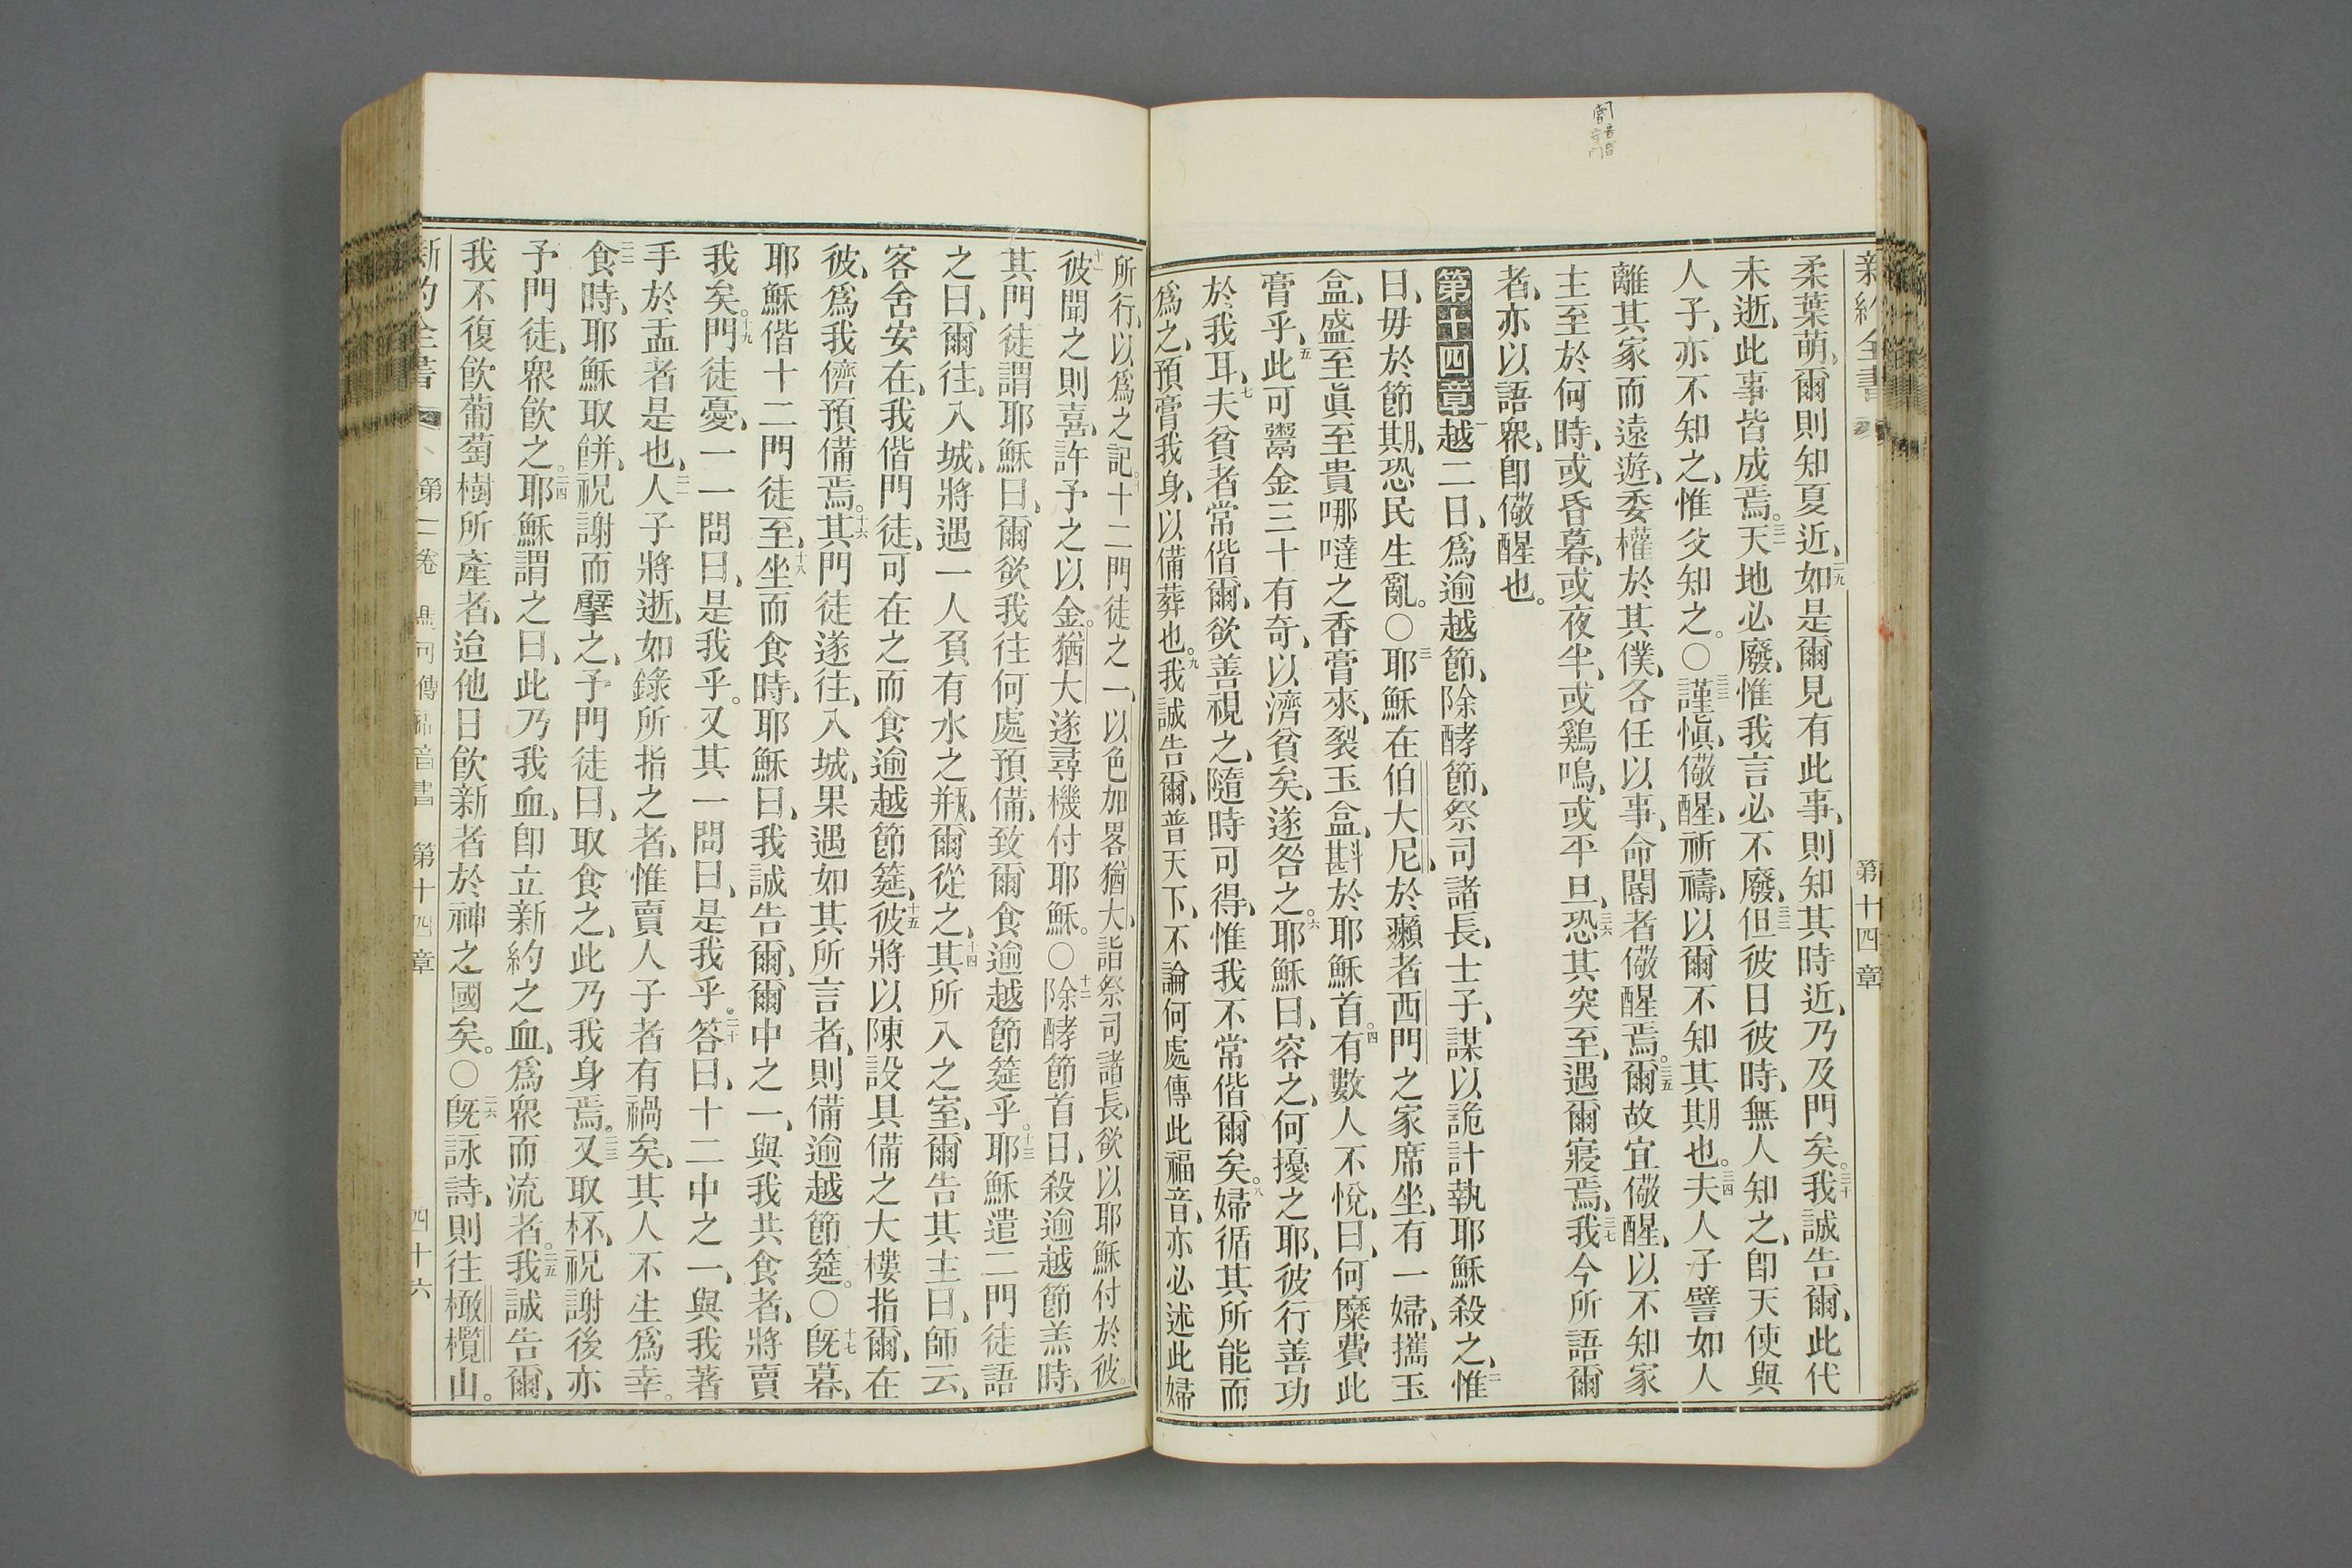 新約全書
第十四章
柔葉萌、爾則知夏近、二九如是爾見有此事、則知其時近、乃及門矣。三十我誠告爾、此代
未逝、此事皆成焉。三一天地必廢、惟我言必不廢、三二但彼日彼時、無人知之、卽天使與
人子、亦不知之、惟父知之。〇三三謹愼、儆醒、祈禱、以爾不知其期也。三四夫人子譬如人
離其家而遠遊、委權於其僕、各任以事、命閽者儆醒焉。三五爾故宜儆醒、以不知家
主至於何時、或昏暮、或夜半、或鷄鳴、或平旦、三六恐其突至、遇爾寢焉、三七我今所語爾
者、亦以語衆、卽儆醒也。
第十四章一越二日、爲逾越節、除酵節、祭司諸長、士子、謀以詭計執耶穌殺之、二惟
曰、毋於節期、恐民生亂。〇三耶穌在伯大尼、於癩者西門之家席坐、有一婦、攜玉
盒、盛至眞至貴哪噠之香膏來、裂玉盒、斟於耶穌首。四有數人不悅、曰、何糜費此
膏乎、五此可鬻金三十有奇、以濟貧矣、遂咎之。六耶穌曰、容之、何擾之耶、彼行善功
於我耳、七夫貧者常偕爾、欲善視之、隨時可得、惟我不常偕爾矣。八婦循其所能而
爲之、預膏我身、以備葬也。九我誠告爾、普天下、不論何處傳此福音、亦必述此婦
所行、以爲之記。十十二門徒之一、以色加畧猶大、詣祭司諸長、欲以耶穌付於彼。
十一彼聞之則喜、許予之以金。猶大遂尋機付耶穌。〇十二除酵節首日、殺逾越節羔時、
其門徒謂耶穌曰、爾欲我往何處預備、致爾食逾越節筵乎。十三耶穌遣二門徒語
之曰、爾往、入城、將遇一人負有水之瓶、爾從之、十四其所入之室、爾告其主曰、師云、
客舍安在、我偕門徒、可在之而食逾越節筵、十五彼將以陳設具備之大樓指爾、在
彼、爲我儕預備焉。十六其門徒遂往、入城、果遇如其所言者、則備逾越節筵。〇十七旣暮、
耶穌偕十二門徒至、十八坐而食時、耶穌曰、我誠告爾、爾中之一、與我共食者、將賣
我矣。十九門徒憂、一一問曰、是我乎。又其一問曰、是我乎。二十答曰、十二中之一、與我著
手於盂者是也、二一人子將逝、如錄所指之者、惟賣人子者有禍矣、其人不生爲幸。
二二食時、耶穌取餅、祝謝而擘之、予門徒曰、取食之、此乃我身焉。二三又取杯、祝謝後亦
予門徒、衆飮之。二四耶穌謂之曰、此乃我血、卽立新約之血、爲衆而流者。二五我誠告爾、
我不復飮葡萄樹所產者、迨他日飮新者於神之國矣。〇二六旣詠詩、則往橄欖山。
新約全書 第二卷 馬可傳福音書 第十四章 四十六